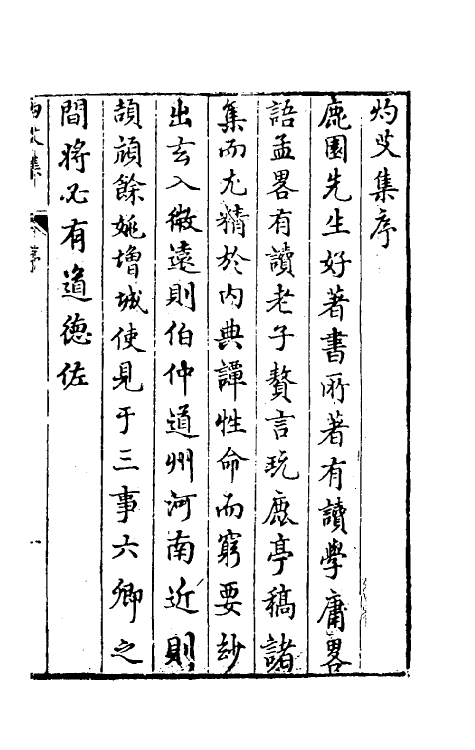 灼艾集序
鹿園先生好著書所著有讀學庸畧
語孟畧有讀老子贅言玩鹿亭稿諸
集而尤精於內典譚性命而窮要妙
出玄入微遠則伯仲道州河南近則
頡頏餘姚增城使見于三事六卿之
間將必有道德佐
灼艾集
序